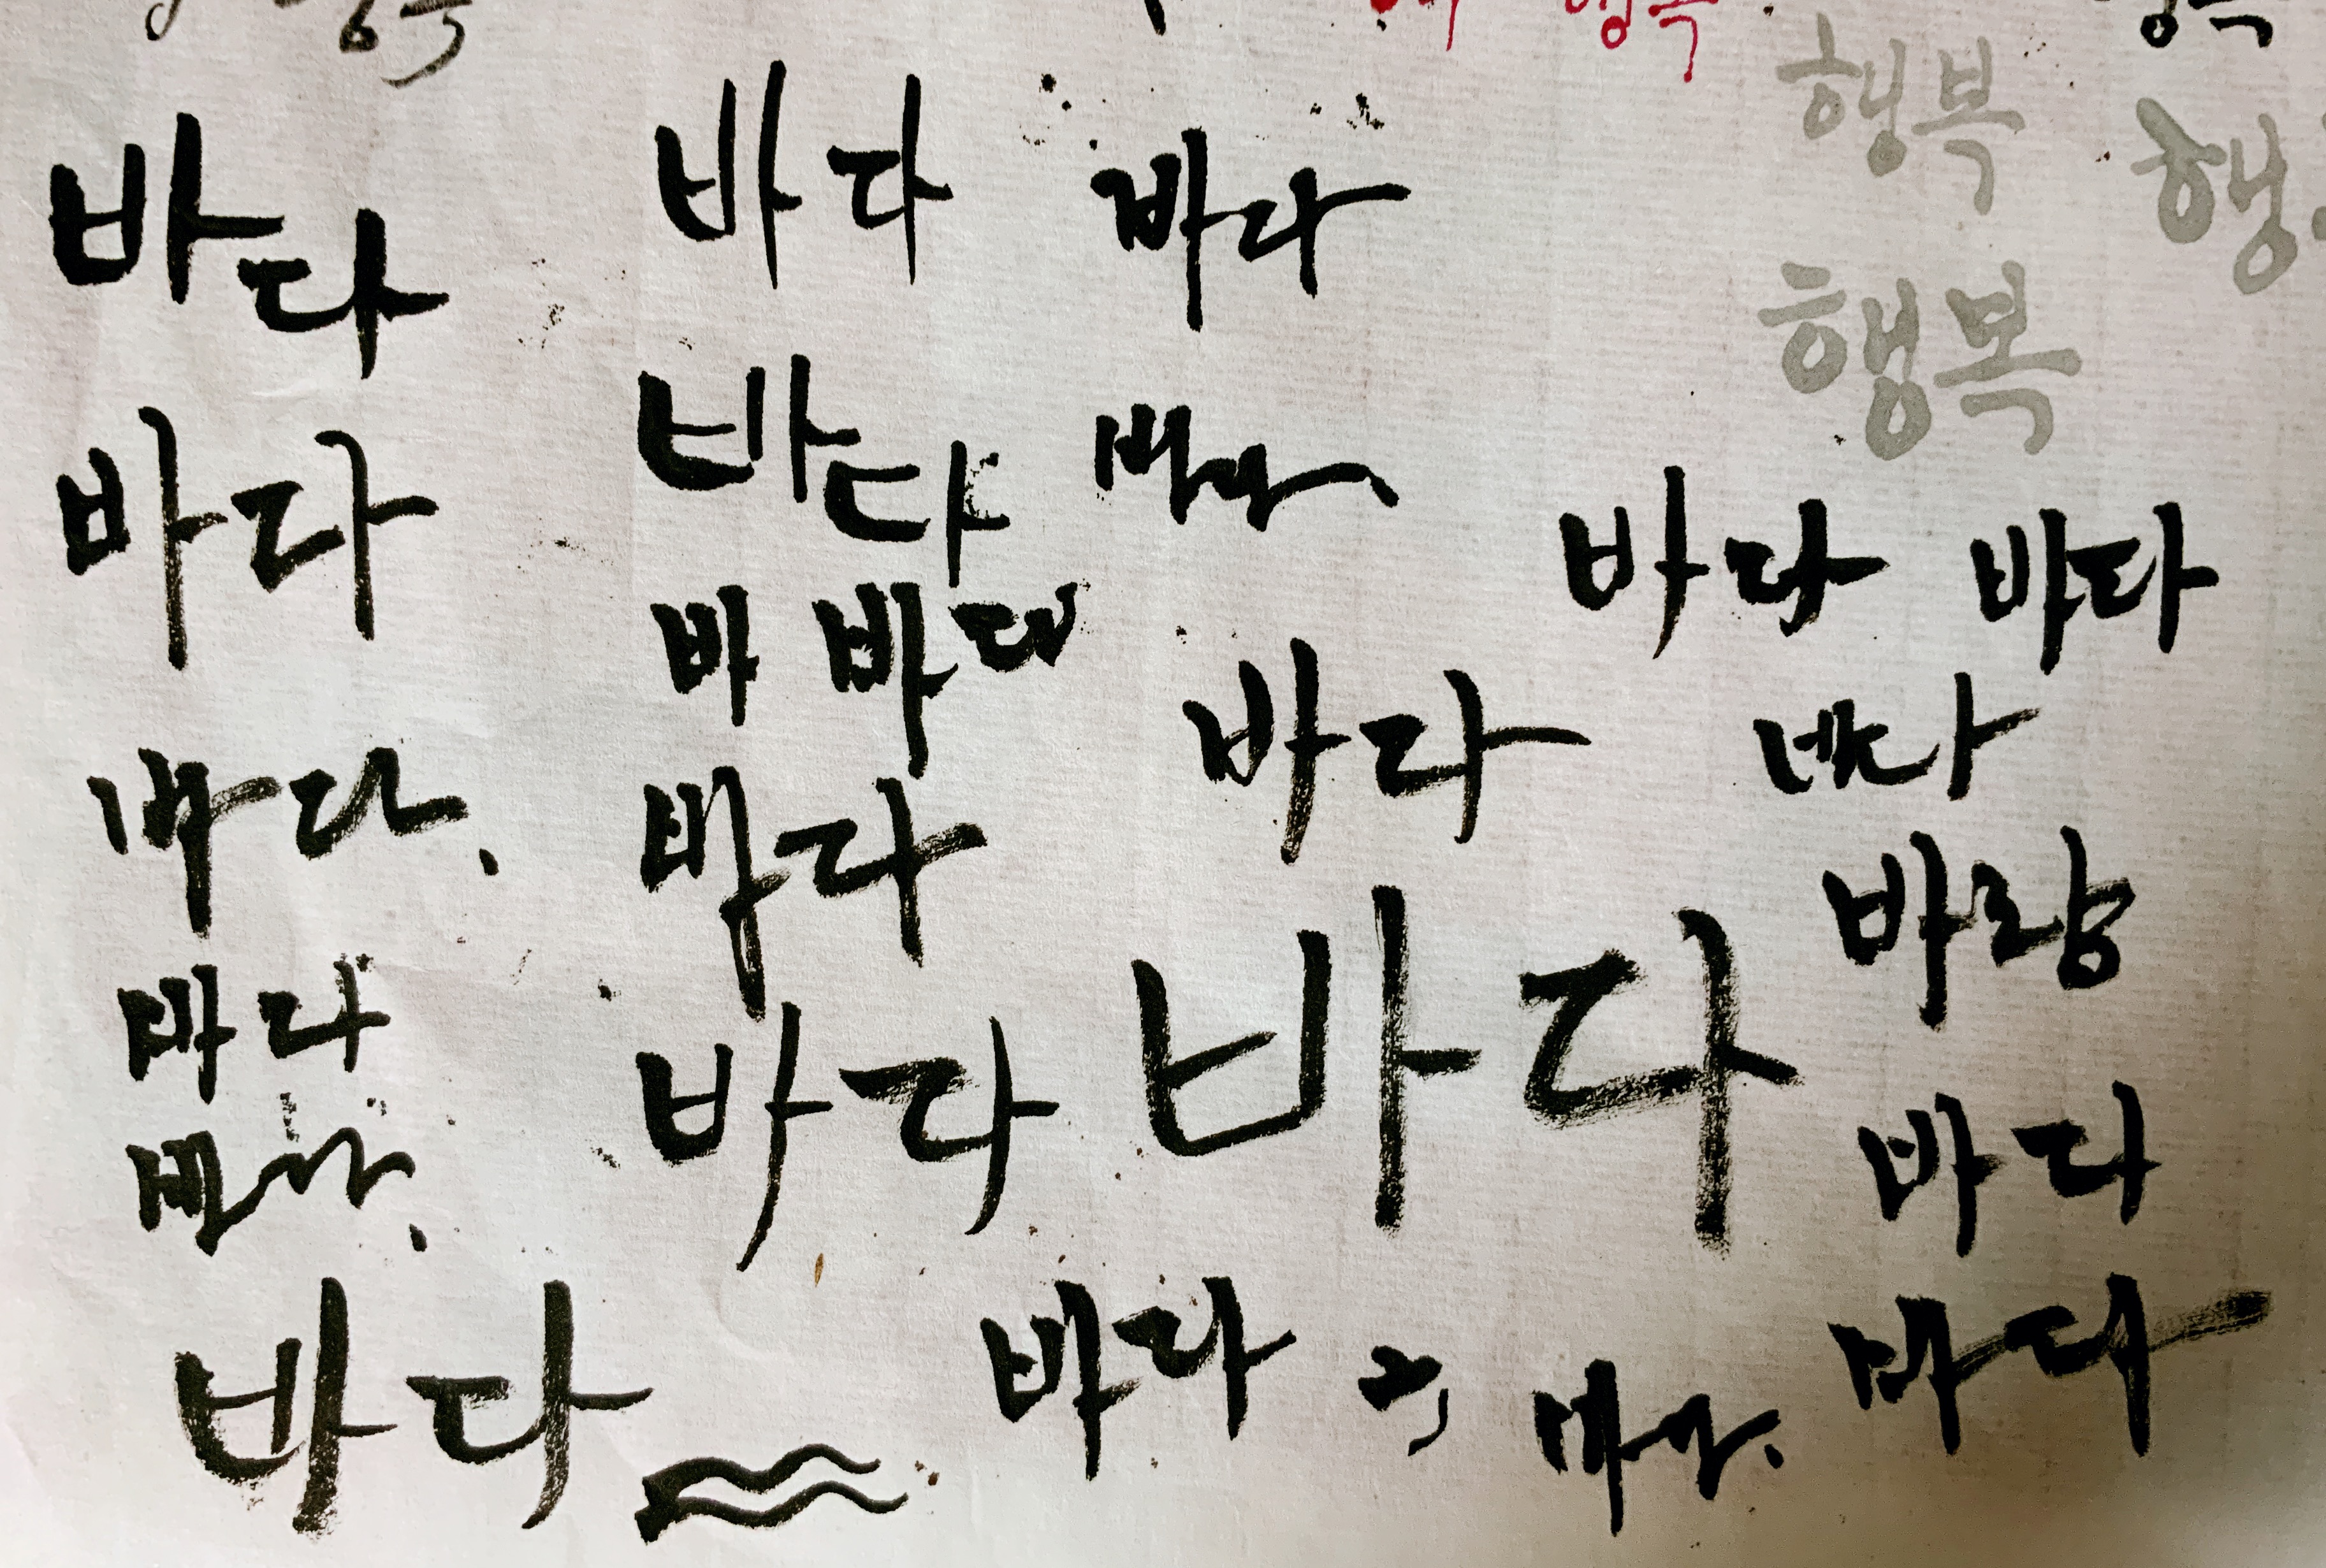 행복
행복
바다 바다 바다
행복
행
바다 바다
행복
바다 바다
바 바다
바다
바다
바다 바다
바다
바람
바다
바다 바다
바다
바다 바다
바다